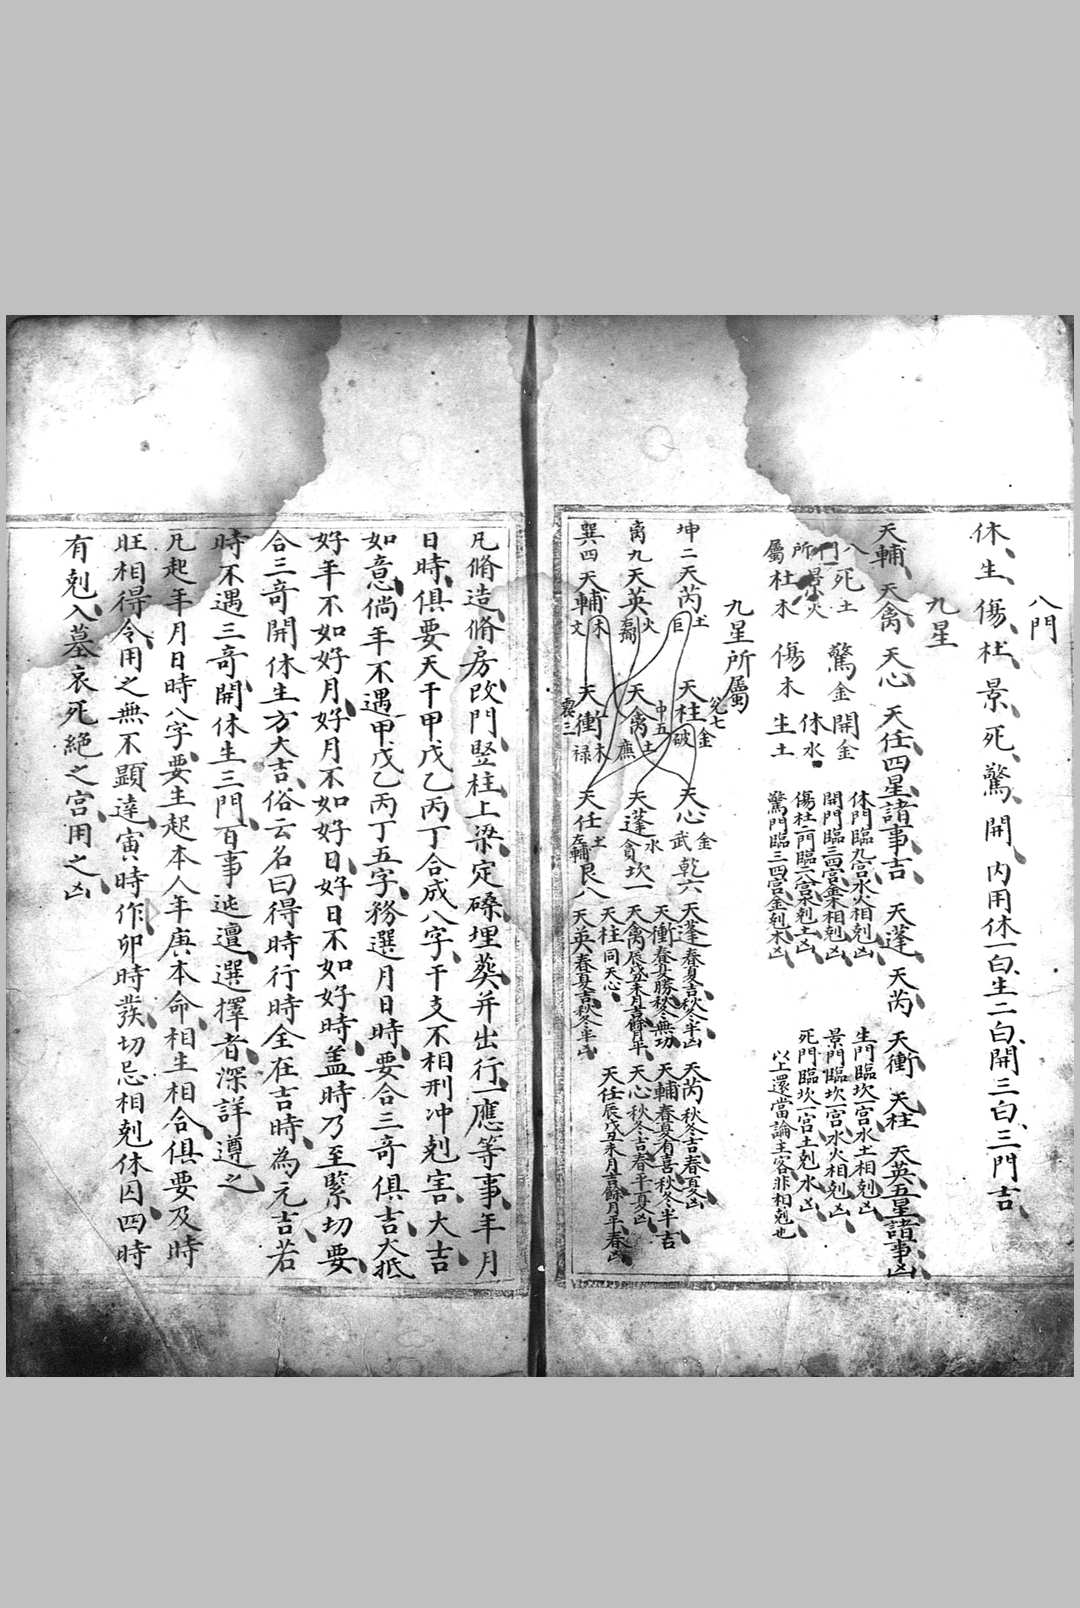 八門
休生傷杜景死驚開內用休一白生二白開三白三門吉
九星
天輔 天禽 天心 天任四星諸事吉 天蓬 天芮 天衝 天柱 天英五星諸事凶
八門所屬
死土 驚金 開金
景火 休水
杜木 傷木 生土
休門臨九宮水火相剋凶
開門臨三四宮金木相剋凶
傷杜二門臨二八宮木剋土凶
驚門臨三四宮金剋木凶
生門臨坎一宮水土相剋凶
景門臨坎一宮水火相剋凶
死門臨坎一宮土剋水凶
以上還當論主客非相剋也
九星所屬
坤二天芮土巨 天柱破 兌七金 天心武金乾六
離九天英火 天禽土廉 中五 天蓬貪水坎一
巽四天輔木文 天衝木祿 震三 天任土左輔艮八
天蓬春夏吉秋冬半凶 天芮秋冬吉春夏凶
天衝春夏勝秋冬無功 天輔春夏有喜秋冬半吉
天禽辰戌丑未月吉餘月平 天心秋冬吉春平夏凶
天柱同天心 天任辰戌丑未月吉餘月平春凶
天英春夏吉秋冬半凶
凡脩造脩房改門竪柱上梁定磉埋葬并出行一應等事年月
日時俱要天干甲戊乙丙丁合成八字干支不相刑冲剋害大吉
如意倘年不遇甲戊乙丙丁五字務選月日時要合三奇俱吉大抵
好年不如好月好月不如好日好日不如好時盖時乃至緊切要
合三奇開休生方大吉俗云名曰得時行時全在吉時為元吉若
時不遇三奇開休生三門百事迍邅選擇者深詳遵之
凡起年月日時八字要生起本人年庚本命相生相合俱要及時
旺相得令用之無不顕達寅時作卯時發切忌相剋休囚四時
有剋入墓衰死絕之宮用之凶